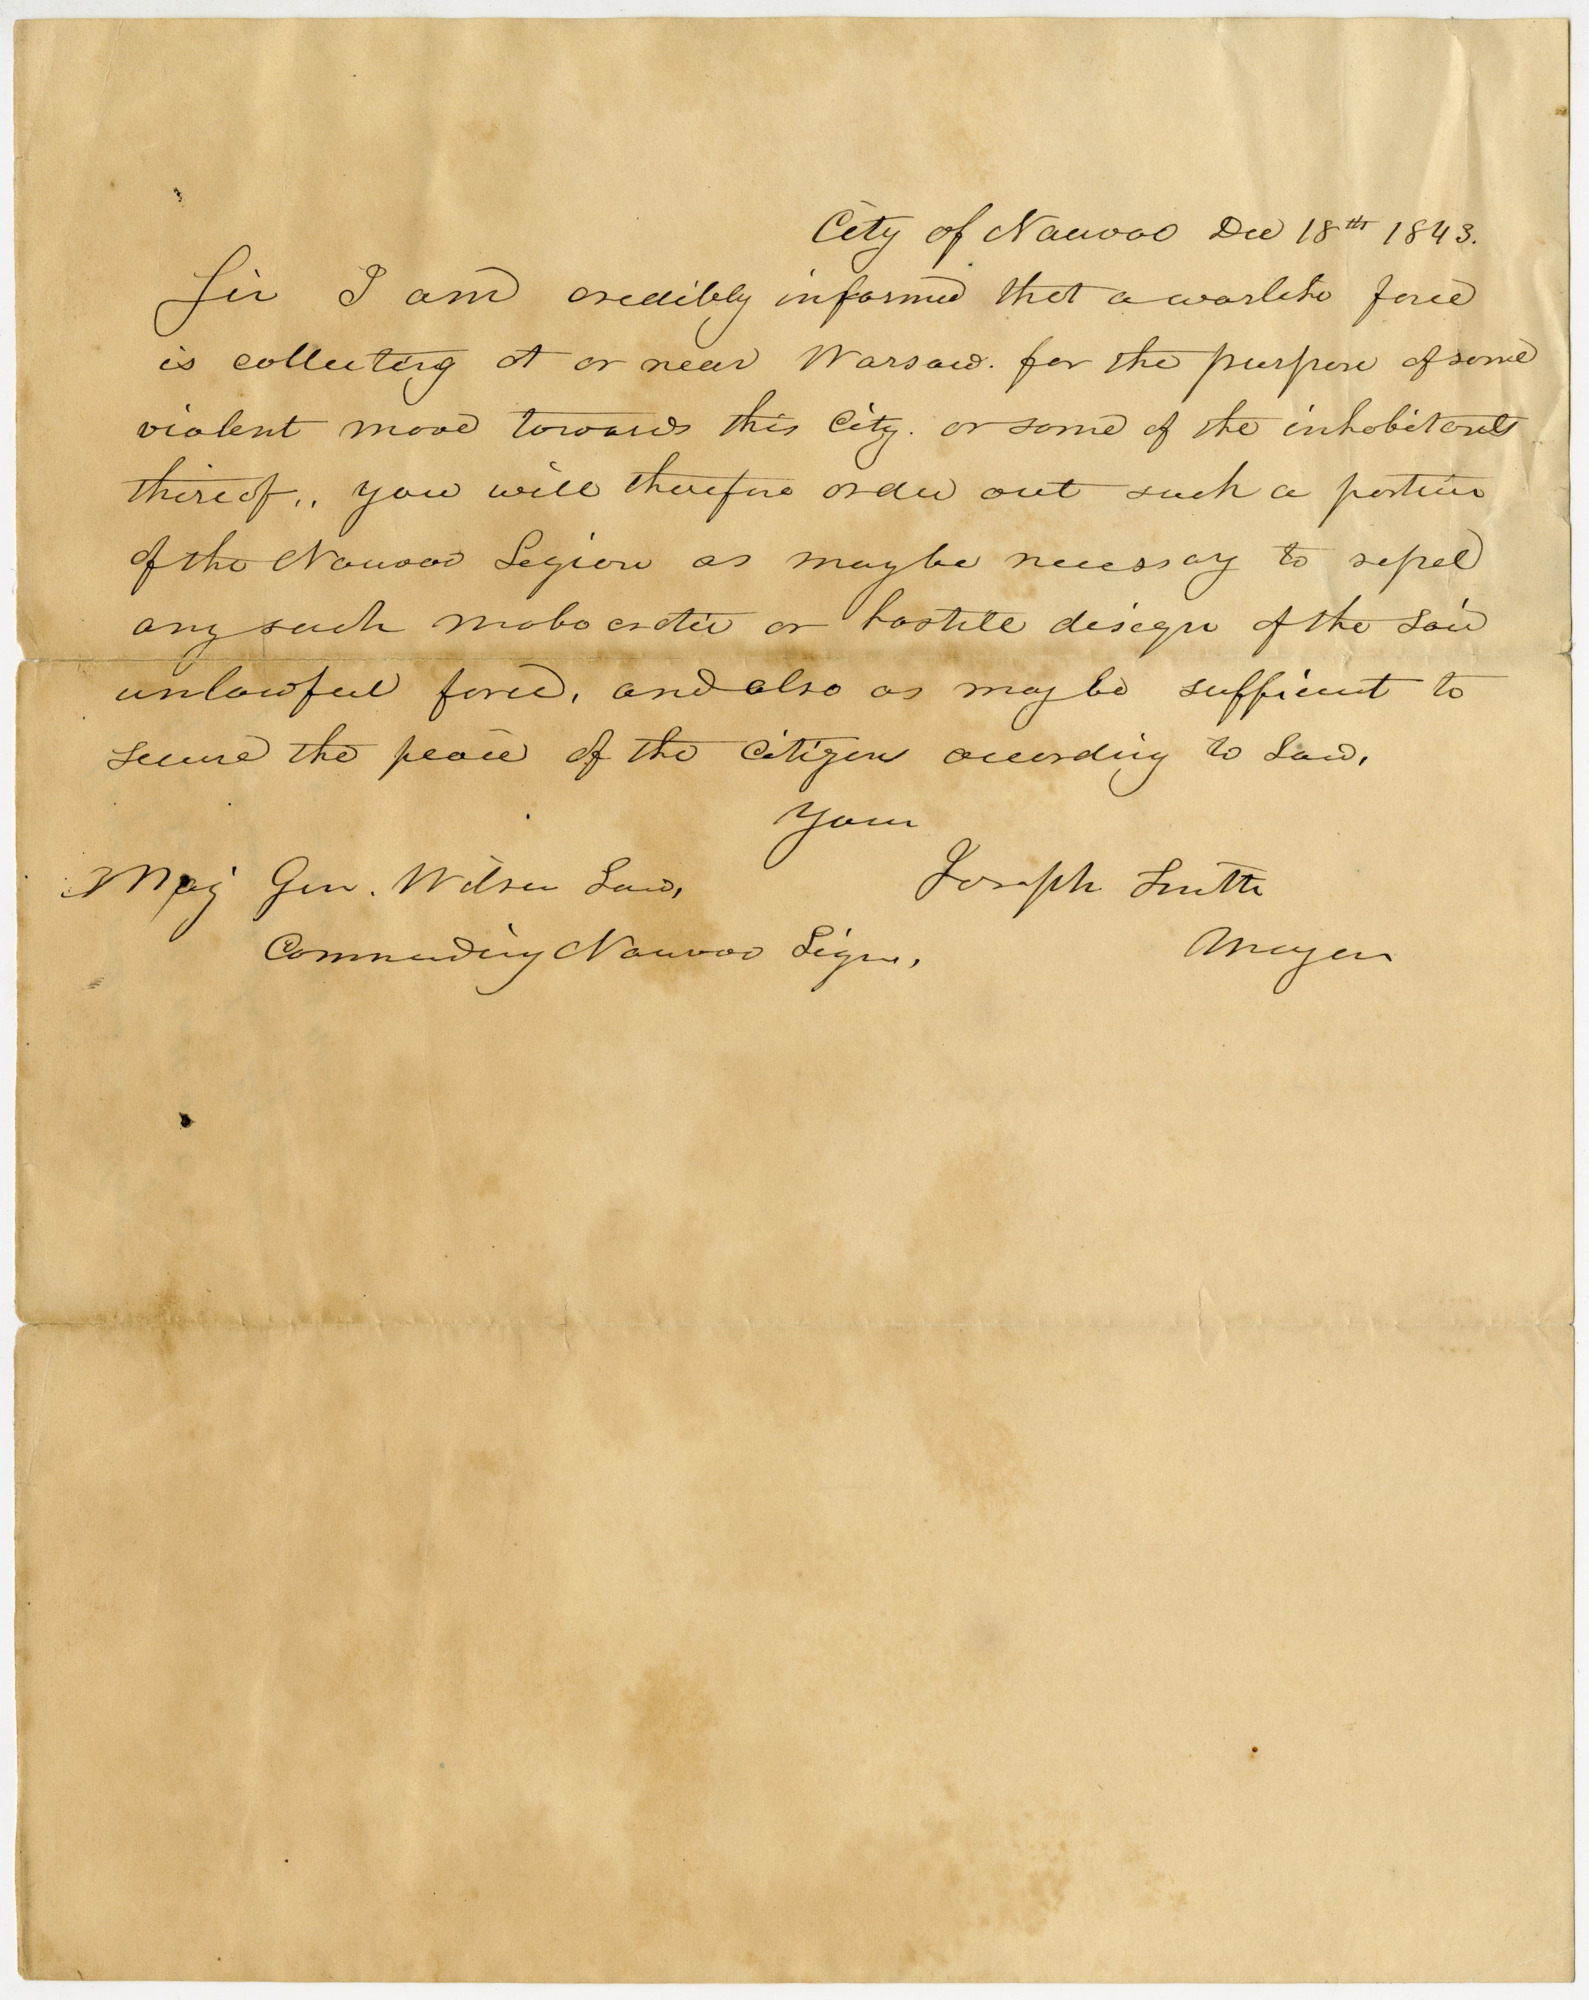 City of Nauvoo Dec 18th 1843.
Sir I am credibly informed that a warlike force
is collecting at or near Warsaw. for the purpose of some
violent move towards this City. or some of the inhabitants
thereof., you will therefore order out such a portion
of the Nauvoo Legion as may be necessary to repel
any such mobocratic or hostile design of the said
unlawful force, and also as may be sufficient to
secure the peace of the Citizens according to Law,
Yours
Maj Gen. Wilson Law, Joseph Smith
Commanding Nauvoo Legion, Mayor